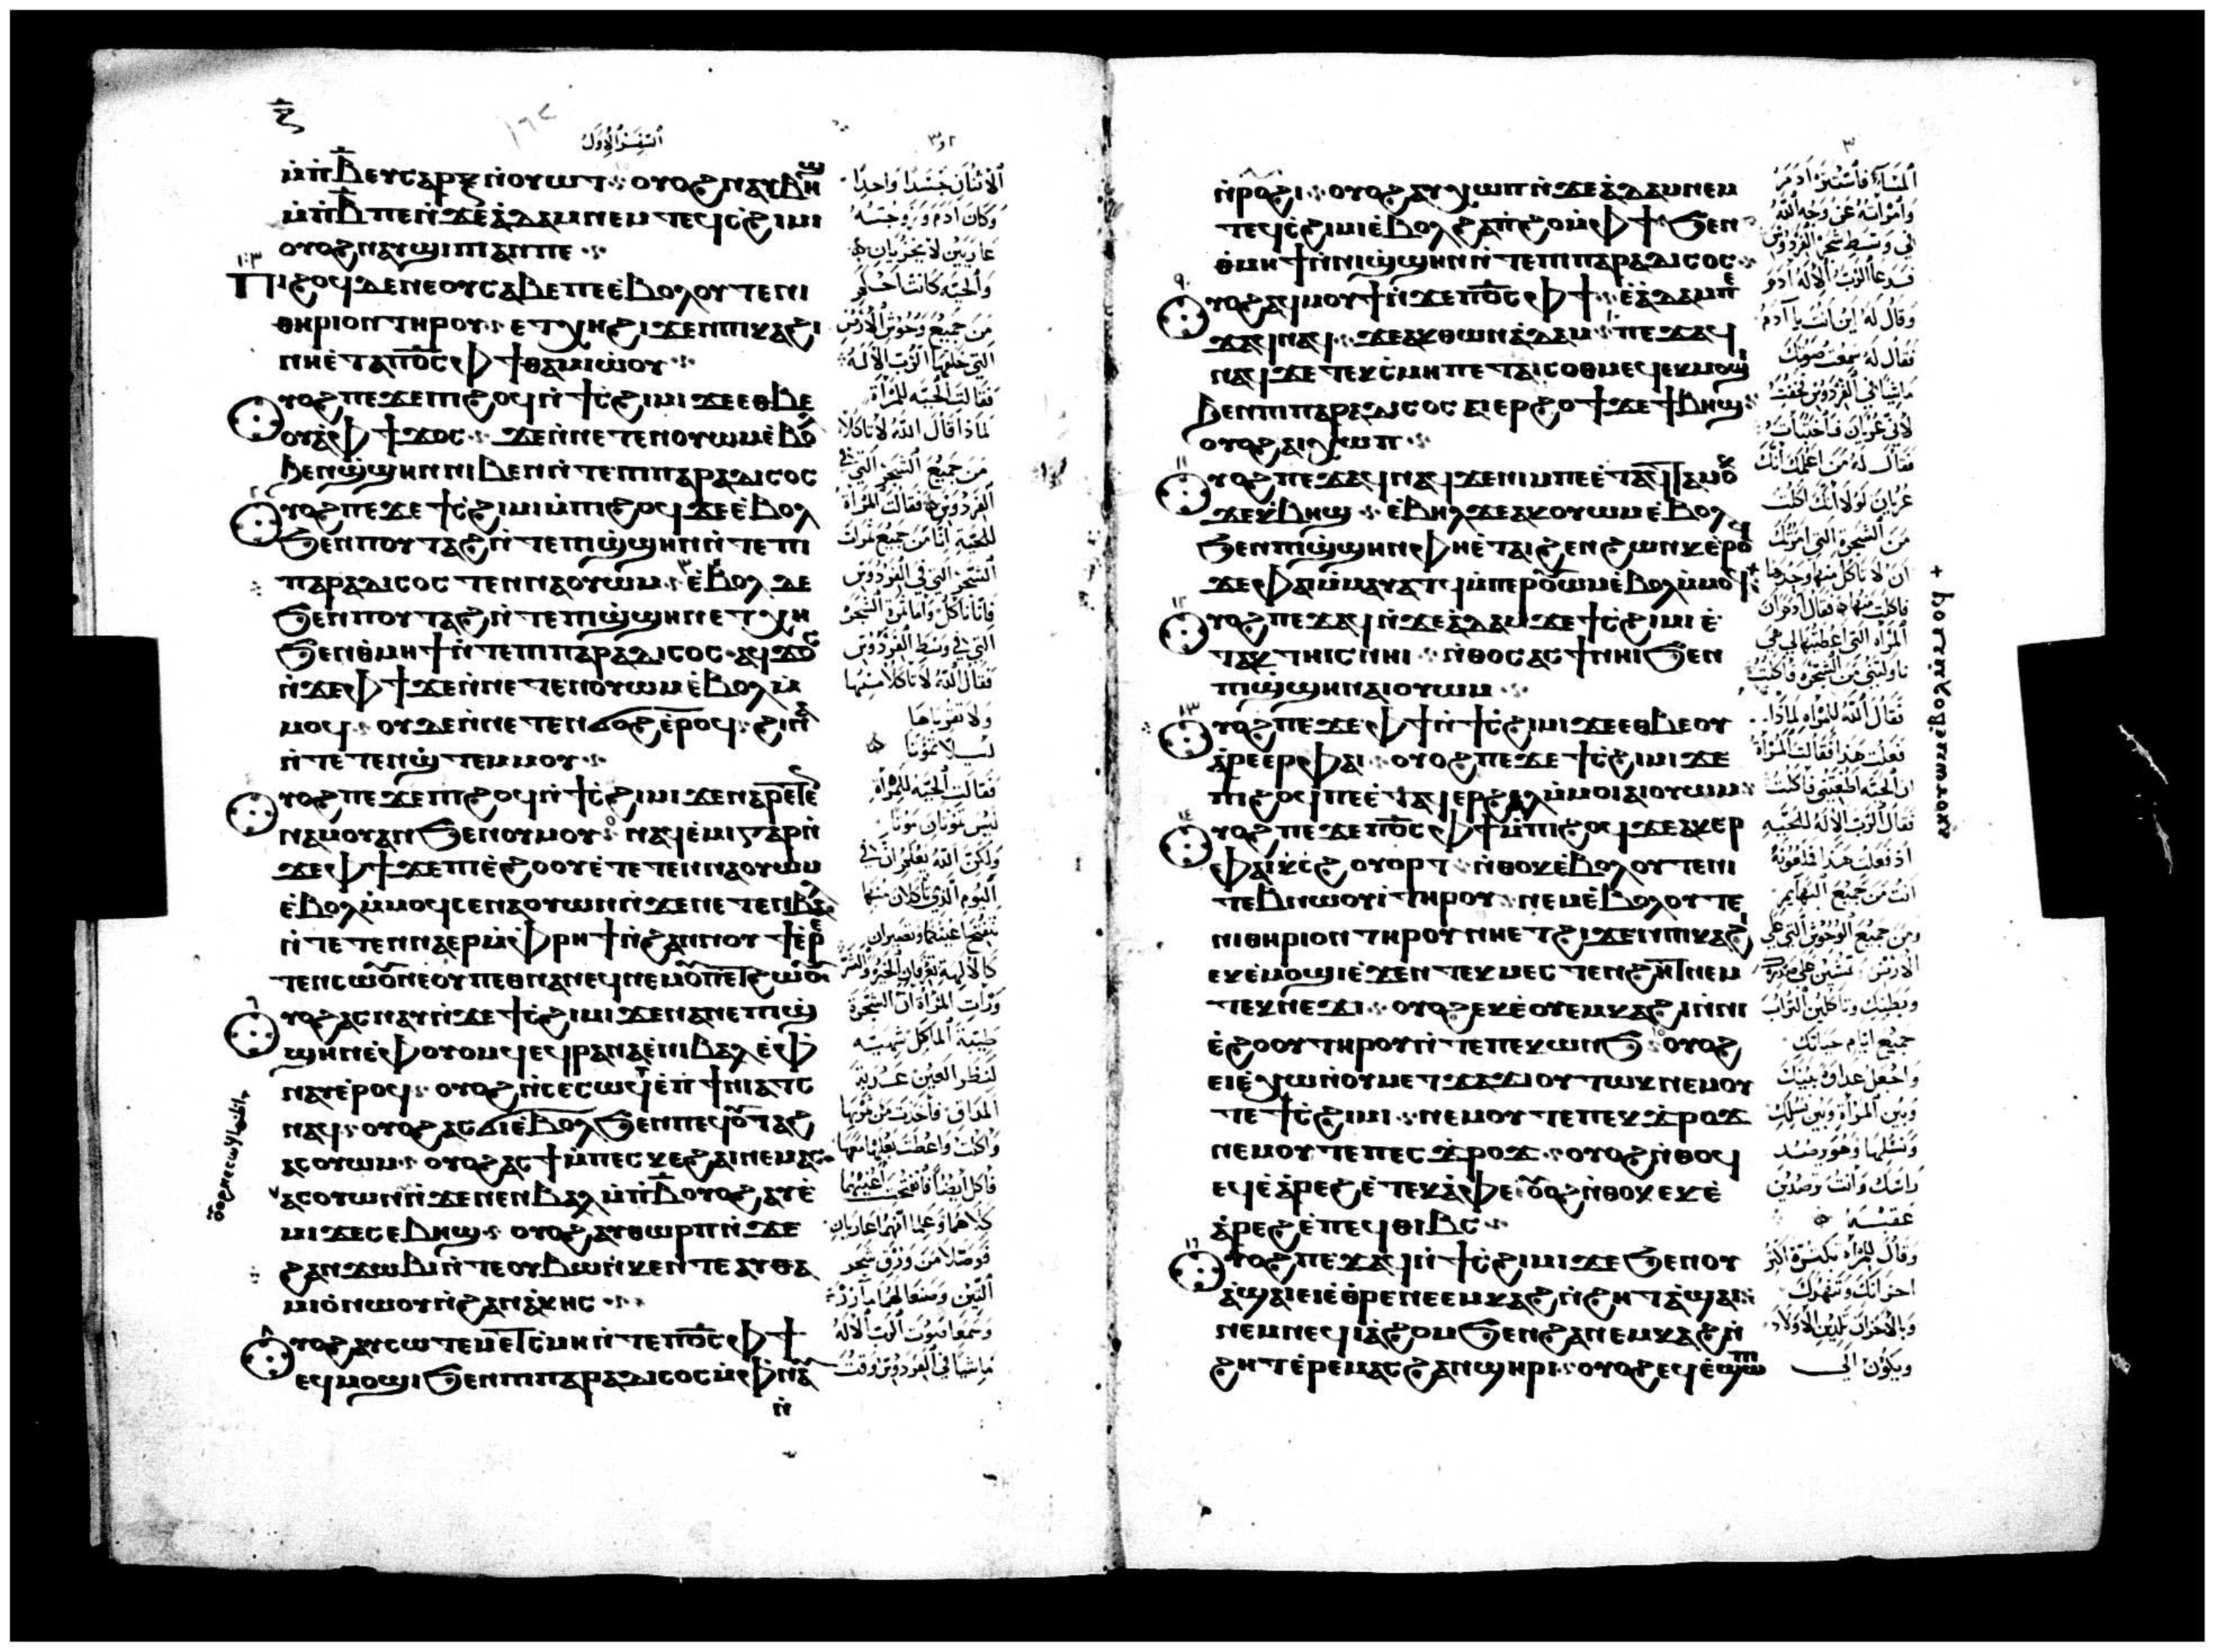 ⲝ̄
السفر الاول
ⲙ̇ⲡ̇ⲃ̄ ⲉⲩⲥⲁⲣⲝ ⲛ̇ⲟⲩⲱⲧ ⲟⲩⲟϩ ⲛⲁⲩⲃⲏϣ
ⲙ̇ⲡ̇ⲃ̄ ⲡⲉ ⲛ̇ϫⲉ ⲁ̇ⲇⲁⲙ ⲛⲉⲙ ⲧⲉϥⲥ̇ϩⲓⲙⲓ
ⲟⲩⲟϩ ⲛⲁⲩϣⲓⲡⲓ ⲁⲛ ⲡⲉ
ⲡⲓϩⲟϥ ⲇⲉ ⲛⲉ ⲟⲩⲥⲁⲃⲉ ⲡⲉ ⲉ̇ⲃⲟⲗ ⲟⲩⲧⲉ ⲛⲓ
ⲑⲏⲣⲓⲟⲛ ⲧⲏⲣⲟⲩ ⲉⲧⲭⲏ ϩⲓϫⲉⲛ ⲡⲓⲕⲁϩⲓ
ⲛⲏ ⲉ̇ⲧⲁ ⲡⲟ̅ⲥ̅ ⲫϯ ⲑⲁⲙⲓⲱ̇ⲟⲩ
ⲟⲩⲟϩ ⲡⲉϫⲉ ⲡⲓϩⲟϥ ⲛ̇ϯⲥ̇ϩⲓⲙⲓ ϫⲉ ⲉⲑⲃⲉ
ⲟⲩ ⲁ̇ ⲫϯ ϫⲟⲥ ϫⲉ ⲛ̇ⲛⲉⲧⲉⲛⲟⲩⲱⲙ ⲉ̇ⲃⲟⲗ
ϧⲉⲛ ϣ̇ϣⲏⲛ ⲛⲓⲃⲉⲛ ⲛ̇ⲧⲉ ⲡⲓⲡⲁⲣⲁⲇⲓⲥⲟⲥ
ⲟⲩⲟϩ ⲡⲉϫⲉ ϯⲥ̇ϩⲓⲙⲓ ⲙ̇ⲡⲓϩⲟϥ ϫⲉ ⲉ̇ⲃⲟⲗ
ϧⲉⲛ ⲡⲟⲩⲧⲁϩ ⲛ̇ⲧⲉ ⲡⲓϣ̇ϣⲏⲛ ⲛ̇ⲧⲉ ⲡⲓ
ⲡⲁⲣⲁⲇⲓⲥⲟⲥ ⲧⲉⲛⲛⲁⲟⲩⲱⲙ ⲉ̇ⲃⲟⲗ ⲇⲉ
ϧⲉⲛ ⲡⲟⲩⲧⲁϩ ⲛ̇ⲧⲉ ⲡⲓϣ̇ϣⲏⲛ ⲉⲧⲭⲏ
ϧⲉⲛ ⲑ̇ⲙⲏϯ ⲛ̇ⲧⲉ ⲡⲓⲡⲁⲣⲁⲇⲓⲥⲟⲥ ⲁϥϫⲟⲥ
ⲛ̇ϫⲉ ⲫϯ ϫⲉ ⲛ̇ⲛⲉⲧⲉⲛⲟⲩⲱⲙ ⲉ̇ⲃⲟⲗ ⲙ̇
ⲙⲟϥ ⲟⲩⲇⲉ ⲛ̇ⲛⲉⲧⲉⲛϭⲟϩ ⲉ̇ⲣⲟϥ ϩⲓⲛⲁ
ⲛ̇ⲧⲉⲧⲉⲛϣ̇ⲧⲉⲙⲙⲟⲩ
ⲟⲩⲟϩ ⲡⲉϫⲉ ⲡⲓϩⲟϥ ⲛ̇ϯⲥ̇ϩⲓⲙⲓ ϫⲉ ⲛⲁⲣⲉⲧⲉ
ⲛⲁⲙⲟⲩ ⲁⲛ ϧⲉⲛ ⲟⲩⲙⲟⲩ ⲛⲁϥⲉ̇ⲙⲓ ⲅⲁⲣ ⲛ̇
ϫⲉ ⲫϯ ϫⲉ ⲡⲓⲉ̇ϩⲟⲟⲩ ⲉ̇ⲧⲉⲧⲉⲛⲛⲁⲟⲩⲱⲙ
ⲉ̇ⲃⲟⲗ ⲙ̇ⲙⲟϥ ⲥⲉⲛⲁⲟⲩⲱⲛ ⲛ̇ϫⲉ ⲛⲉⲧⲉⲛⲃⲁⲗ
ⲛ̇ⲧⲉⲧⲉⲛⲛⲁⲉⲣ ⲙ̇ⲫⲣⲏϯ ⲛ̇ϩⲁⲛⲛⲟⲩϯ ⲉ̇ⲣⲉ
ⲧⲉⲛⲥⲱⲟⲩⲛ ⲛ̇ⲟⲩⲡⲉⲑⲛⲁⲛⲉϥ ⲛⲉⲙ ⲟⲩⲡⲉⲧϩⲱⲟⲩ
ⲟⲩⲟϩ ⲁⲥⲛⲁⲩ ⲛ̇ϫⲉ ϯⲥ̇ϩⲓⲙⲓ ϫⲉ ⲛⲁⲛⲉ ⲡⲓϣ̇
ϣⲏⲛ ⲉ̇ⲫ̇ⲟⲩⲟⲙϥ ⲉϥⲣⲁⲛⲁ ⲉ̇ⲛⲓⲃⲁⲗ ⲉ̇ⲫ̇
ⲛⲁⲩ ⲉ̇ⲣⲟϥ ⲟⲩⲟϩ ⲛ̇ⲥⲉⲥⲱϥ ⲉ̇ⲡ̇ϯⲛⲓⲁⲧⲥ
ⲛⲁϥ ⲟⲩⲟϩ ⲁⲥϭⲓ ⲉⲃⲟⲗ ϧⲉⲛ ⲡⲉϥⲟⲩⲧⲁϩ
ⲁⲥⲟⲩⲱⲙ ⲟⲩⲟϩ ⲁⲥϯ ⲙ̇ⲡⲉⲥⲕⲉϩⲁⲓ ⲛⲉⲙⲁⲥ
ⲁⲥⲟⲩⲱⲛ ⲛ̇ϫⲉ ⲛⲉⲛⲃⲁⲗ ⲙ̇ⲡ̇ⲃ̄ ⲟⲩⲟϩ ⲁⲩⲉ̇
ⲙⲓ ϫⲉ ⲥⲉⲃⲏϣ ⲟⲩⲟϩ ⲁⲩⲑⲱⲣⲡ ⲛ̇ϫⲉ
ϩⲁⲛϫⲱⲃⲓ ⲛ̇ⲧⲉ ⲟⲩⲃⲱ ⲛ̇ⲕⲉⲛⲧⲉ ⲁⲩⲑⲁ
ⲙⲓⲟ̇ ⲛⲱⲟⲩ ⲛ̇ϩⲁⲛⲁ̇ⲕⲏⲥ
ⲟⲩⲟϩ ⲁⲩⲥⲱⲧⲉⲙ ⲉ̇ⲧⲥⲙⲏ ⲛ̇ⲧⲉ ⲡⲟ̅ⲥ̅ ⲫϯ
ⲉϥⲙⲟϣⲓ ϧⲉⲛ ⲡⲓⲡⲁⲣⲁⲇⲓⲥⲟⲥ ⲙ̇ⲫ̇ⲛⲁⲩ
ⲛ̇
الاثنان جسدا واحدا
وكان ادم وزوجته
عاريين لا يخزيان
والحية كانت احكم
من جميع وحوش الارض
التي خلقها الرب الاله
فقالت الحية للمرأة
لماذا قال الله لا تاكلا
من جميع الشجر التي في
الفردوس فقالت المرأة
للحية اننا من جميع ثمرات
الشجر التي في الفردوس
فاننا ناكل واما ثمرة الشجرة
التي في وسط الفردوس
فقال الله لا تاكلا منها
ولا تقرباها
ليلا تموتا
فقالت الحية للمرأة
ليس تموتان موتا
ولكن الله يعلم ان في
اليوم الذي تاكلان منها
تنفتح اعينكما وتصيران
كالالهة تعرفان الخير والشر
ورات المرأة ان الشجرة
طيبة الماكل شهية
لنظر العين
المذاق فاخذت من ثمرتها
واكلت واعطت بعلها معها
فاكل ايضا فانفتحت اعينهما
كلاهما وعلما انهما عاريان
فوصلا من ورق شجر
التين وصنعا لهما مآزر
وسمعا صوت الرب الاله
ماشيا في الفردوس وقت
ⲛ̇ⲣⲟϩⲓ ⲟⲩⲟϩ ⲁⲩⲭⲱⲡ ⲛ̇ϫⲉ ⲁ̇ⲇⲁⲙ ⲛⲉⲙ
ⲧⲉϥⲥ̇ϩⲓⲙⲓ ⲉ̇ⲃⲟⲗ ϩⲁ ⲡ̇ϩⲟ ⲙ̇ⲫϯ ϧⲉⲛ
ⲑ̇ⲙⲏϯ ⲛ̇ⲛⲓϣ̇ϣⲏⲛ ⲛ̇ⲧⲉ ⲡⲓⲡⲁⲣⲁⲇⲓⲥⲟⲥ
ⲟⲩⲟϩ ⲁϥⲙⲟⲩϯ ⲛ̇ϫⲉ ⲡⲟ̅ⲥ̅ ⲫϯ ⲉ̇ⲁ̇ⲇⲁⲙ ⲡⲉ
ϫⲁϥ ⲛⲁϥ ϫⲉ ⲁⲕⲑⲱⲛ ⲁ̇ⲇⲁⲙ ⲡⲉϫⲁϥ
ⲛⲁϥ ϫⲉ ⲧⲉⲕⲥ̇ⲙⲏ ⲡⲉⲧⲁⲓⲥⲟⲑⲙⲉⲥ ⲉⲕⲙⲟϣⲓ
ϧⲉⲛ ⲡⲓⲡⲁⲣⲁⲇⲓⲥⲟⲥ ⲁⲓⲉⲣϩⲟϯ ϫⲉ ϯⲃⲏϣ
ⲟⲩⲟϩ ⲁⲓⲭⲱⲡ
ⲟⲩⲟϩ ⲡⲉϫⲁϥ ⲛⲁϥ ϫⲉ ⲛⲓⲙ ⲡⲉ ⲉ̇ⲧⲁϥⲧⲁⲙⲟⲕ
ϫⲉ ⲕ̇ⲃⲏϣ ⲉ̇ⲃⲏⲗ ϫⲉ ⲁⲕⲟⲩⲱⲙ ⲉ̇ⲃⲟⲗ
ϧⲉⲛ ⲡⲓϣ̇ϣⲏⲛ ⲫⲏ ⲉ̇ⲧⲁⲓϩⲉⲛϩⲱⲛⲕ ⲉ̇ⲣⲟϥ
ϫⲉ ⲫⲁⲓ ⲙ̇ⲙⲁⲩⲁⲧϥ ⲙ̇ⲡⲉⲣⲟⲩⲱⲙ ⲉ̇ⲃⲟⲗ ⲙ̇ⲙⲟϥ
ⲟⲩⲟϩ ⲡⲉϫⲁϥ ⲛ̇ϫⲉ ⲁ̇ⲇⲁⲙ ϫⲉ ϯⲥ̇ϩⲓⲙⲓ ⲉ̇
ⲧⲁⲕⲧⲏⲓⲥ ⲛⲏⲓ ⲛ̇ⲑⲟⲥ ⲁⲥϯ ⲛⲏⲓ ϧⲉⲛ
ⲡⲓϣ̇ϣⲏⲛ ⲁⲓⲟⲩⲱⲙ
ⲟⲩⲟϩ ⲡⲉϫⲉ ⲫϯ ⲛ̇ϯⲥ̇ϩⲓⲙⲓ ϫⲉ ⲉⲑⲃⲉ ⲟⲩ
ⲁ̇ⲣⲉⲉⲣ ⲫⲁⲓ ⲟⲩⲟϩ ⲡⲉϫⲉ ϯⲥ̇ϩⲓⲙⲓ ϫⲉ
ⲡⲓϩⲟϥ ⲡⲉ ⲉ̇ⲧⲁϥⲉⲣϩⲁⲗ ⲙ̇ⲙⲟⲓ ⲁⲓⲟⲩⲱⲙ
ⲟⲩⲟϩ ⲡⲉϫⲉ ⲡⲟ̅ⲥ̅ ⲫϯ ⲙ̇ⲡⲓϩⲟϥ ϫⲉ ⲁⲕⲉⲣ
ⲫⲁⲓ ⲕ̇ⲥ̇ϩⲟⲩⲟⲣⲧ ⲛ̇ⲑⲟⲕ ⲉ̇ⲃⲟⲗ ⲟⲩⲧⲉ ⲛⲓ
ⲧⲉⲃⲛⲱⲟⲩⲓ̇ ⲧⲏⲣⲟⲩ ⲛⲉⲙ ⲉ̇ⲃⲟⲗ ⲟⲩⲧⲉ
ⲛⲓⲑⲏⲣⲓⲟⲛ ⲧⲏⲣⲟⲩ ⲛⲏ ⲉⲧϩⲓϫⲉⲛ ⲡⲓⲕⲁϩⲓ
ⲉⲕⲉ̇ⲙⲟϣⲓ ⲉ̇ϫⲉⲛ ⲧⲉⲕⲙⲉⲥⲧⲉⲛϩⲏⲧ ⲛⲉⲙ
ⲧⲉⲕⲛⲉϫⲓ ⲟⲩⲟϩ ⲉⲕⲉ̇ⲟⲩⲉⲙ ⲕⲁϩⲓ ⲛ̇ⲛⲓ
ⲉ̇ϩⲟⲟⲩ ⲧⲏⲣⲟⲩ ⲛ̇ⲧⲉ ⲡⲉⲕⲱⲛϧ ⲟⲩⲟϩ
ⲉⲓⲉ̇ⲭⲱ ⲛ̇ⲟⲩⲙⲉⲧϫⲁϫⲓ ⲟⲩⲧⲱⲕ ⲛⲉⲙ ⲟⲩ
ⲧⲉ ϯⲥ̇ϩⲓⲙⲓ ⲛⲉⲙ ⲟⲩⲧⲉ ⲡⲉⲕϫ̇ⲣⲟϫ
ⲛⲉⲙ ⲟⲩⲧⲉ ⲡⲉⲥϫ̇ⲣⲟϫ ⲟⲩⲟϩ ⲛ̇ⲑⲟϥ
ⲉϥⲉ̇ⲁ̇ⲣⲉϩ ⲉ̇ⲧⲉⲕⲁ̇ⲫⲉ ⲟⲩⲟϩ ⲛ̇ⲑⲟⲕ ⲉⲕⲉ̇
ⲁ̇ⲣⲉϩ ⲉ̇ⲡⲉϥⲑⲓⲃⲥ
ⲟⲩⲟϩ ⲡⲉϫⲁϥ ⲛ̇ϯⲥ̇ϩⲓⲙⲓ ϫⲉ ϧⲉⲛ ⲟⲩ
ⲁ̇ϣⲁⲓ ⲉⲓⲉ̇ⲑⲣⲉ ⲛⲉⲉⲙⲕⲁϩ ⲛ̇ϩⲏⲧ ⲁ̇ϣⲁⲓ
ⲛⲉⲙ ⲛⲉϥⲓⲁ̇ϩⲟⲙ ϧⲉⲛ ϩⲁⲛⲉⲙⲕⲁϩ ⲛ̇
ϩⲏⲧ ⲉ̇ⲣⲉⲙⲁⲥ ϩⲁⲛϣⲏⲣⲓ ⲟⲩⲟϩ ⲉϥⲉ̇ϣⲱⲡⲓ
ⲁⲕⲟⲩⲱⲙ ⲉⲃⲟⲗ ⲙ̇ⲙⲟϥ
المساء فاستتر ادم
وامرأته عن وجه الله
في وسط شجر الفردوس
فدعا الرب الاله ادم
وقال له اين انت يا آدم
فقال له سمعت صوتك
ماشيا في الفردوس فخفت
لاني عريان فاختبات
فقال له من اعلمك انك
عريان لولا انك اكلت
من الشجرة التي امرتك
ان لا تاكل منها وحدها
فاكلت منها فقال ادم ان
المرأة التي اعطيتها لي هي
ناولتني من الشجرة فاكلت
فقال الله للمرأة لماذا
فعلت هذا فقالت المرأة
ان الحية اطغتني فاكلت
فقال الرب الاله للحية
اذ فعلت هذا فملعونة
انت من جميع البهايم
ومن جميع الوحوش التي على
الارض تمشين على صدرك
وبطنك وتاكلين التراب
جميع ايام حياتك
واجعل عداوة بينك
وبين المرأة وبين نسلك
ونسلها وهو يرصد
راسك وانت ترصدين
عقبه
وقال للمرأة بكثرة اكثر
احزانك وتنهدك
وبالاحزان تلدين الاولاد
ويكون الى